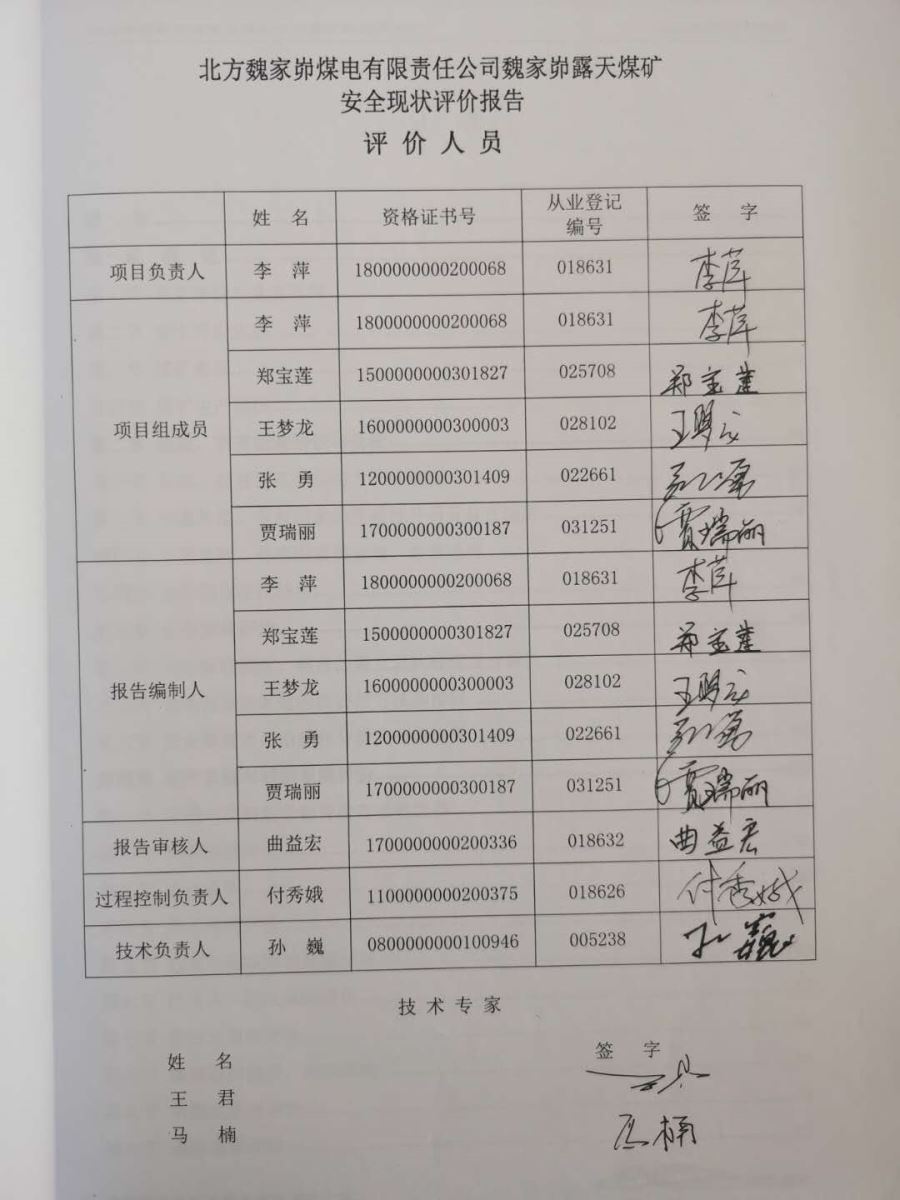 北方魏家峁煤电有限责任公司魏家峁露天煤矿
安全现状评价报告
评价人员
姓 名 资格证书号 从业登记编号 签 字
项目负责人 李 萍 1800000000200068 018631 李萍
项目组成员 李 萍 1800000000200068 018631 李萍
郑宝莲 1500000000301827 025708 郑宝莲
王梦龙 1600000000300003 028102 王梦龙
张 勇 1200000000301409 022661 张勇
贾瑞丽 1700000000300187 031251 贾瑞丽
报告编制人 李 萍 1800000000200068 018631 李萍
郑宝莲 1500000000301827 025708 郑宝莲
王梦龙 1600000000300003 028102 王梦龙
张 勇 1200000000301409 022661 张勇
贾瑞丽 1700000000300187 031251 贾瑞丽
报告审核人 曲益宏 1700000000200336 018632 曲益宏
过程控制负责人 付秀娥 1100000000200375 018626 付秀娥
技术负责人 孙 巍 0800000000100946 005238 孙巍
技术专家
姓 名 签 字
王 君
马 楠 马楠